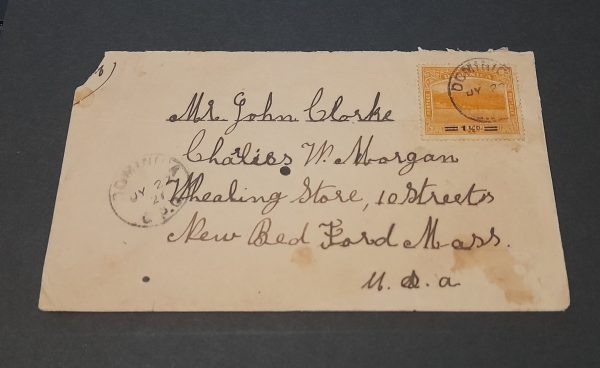 Mr John Clorke
Charlies W. Morgan
Whealing Store, 10 Streets
New Bed Ford Mass.
U.S.a
DOMINICA
JY 2
21
G.P.O.
DOMINICA
JY 2
1½D.